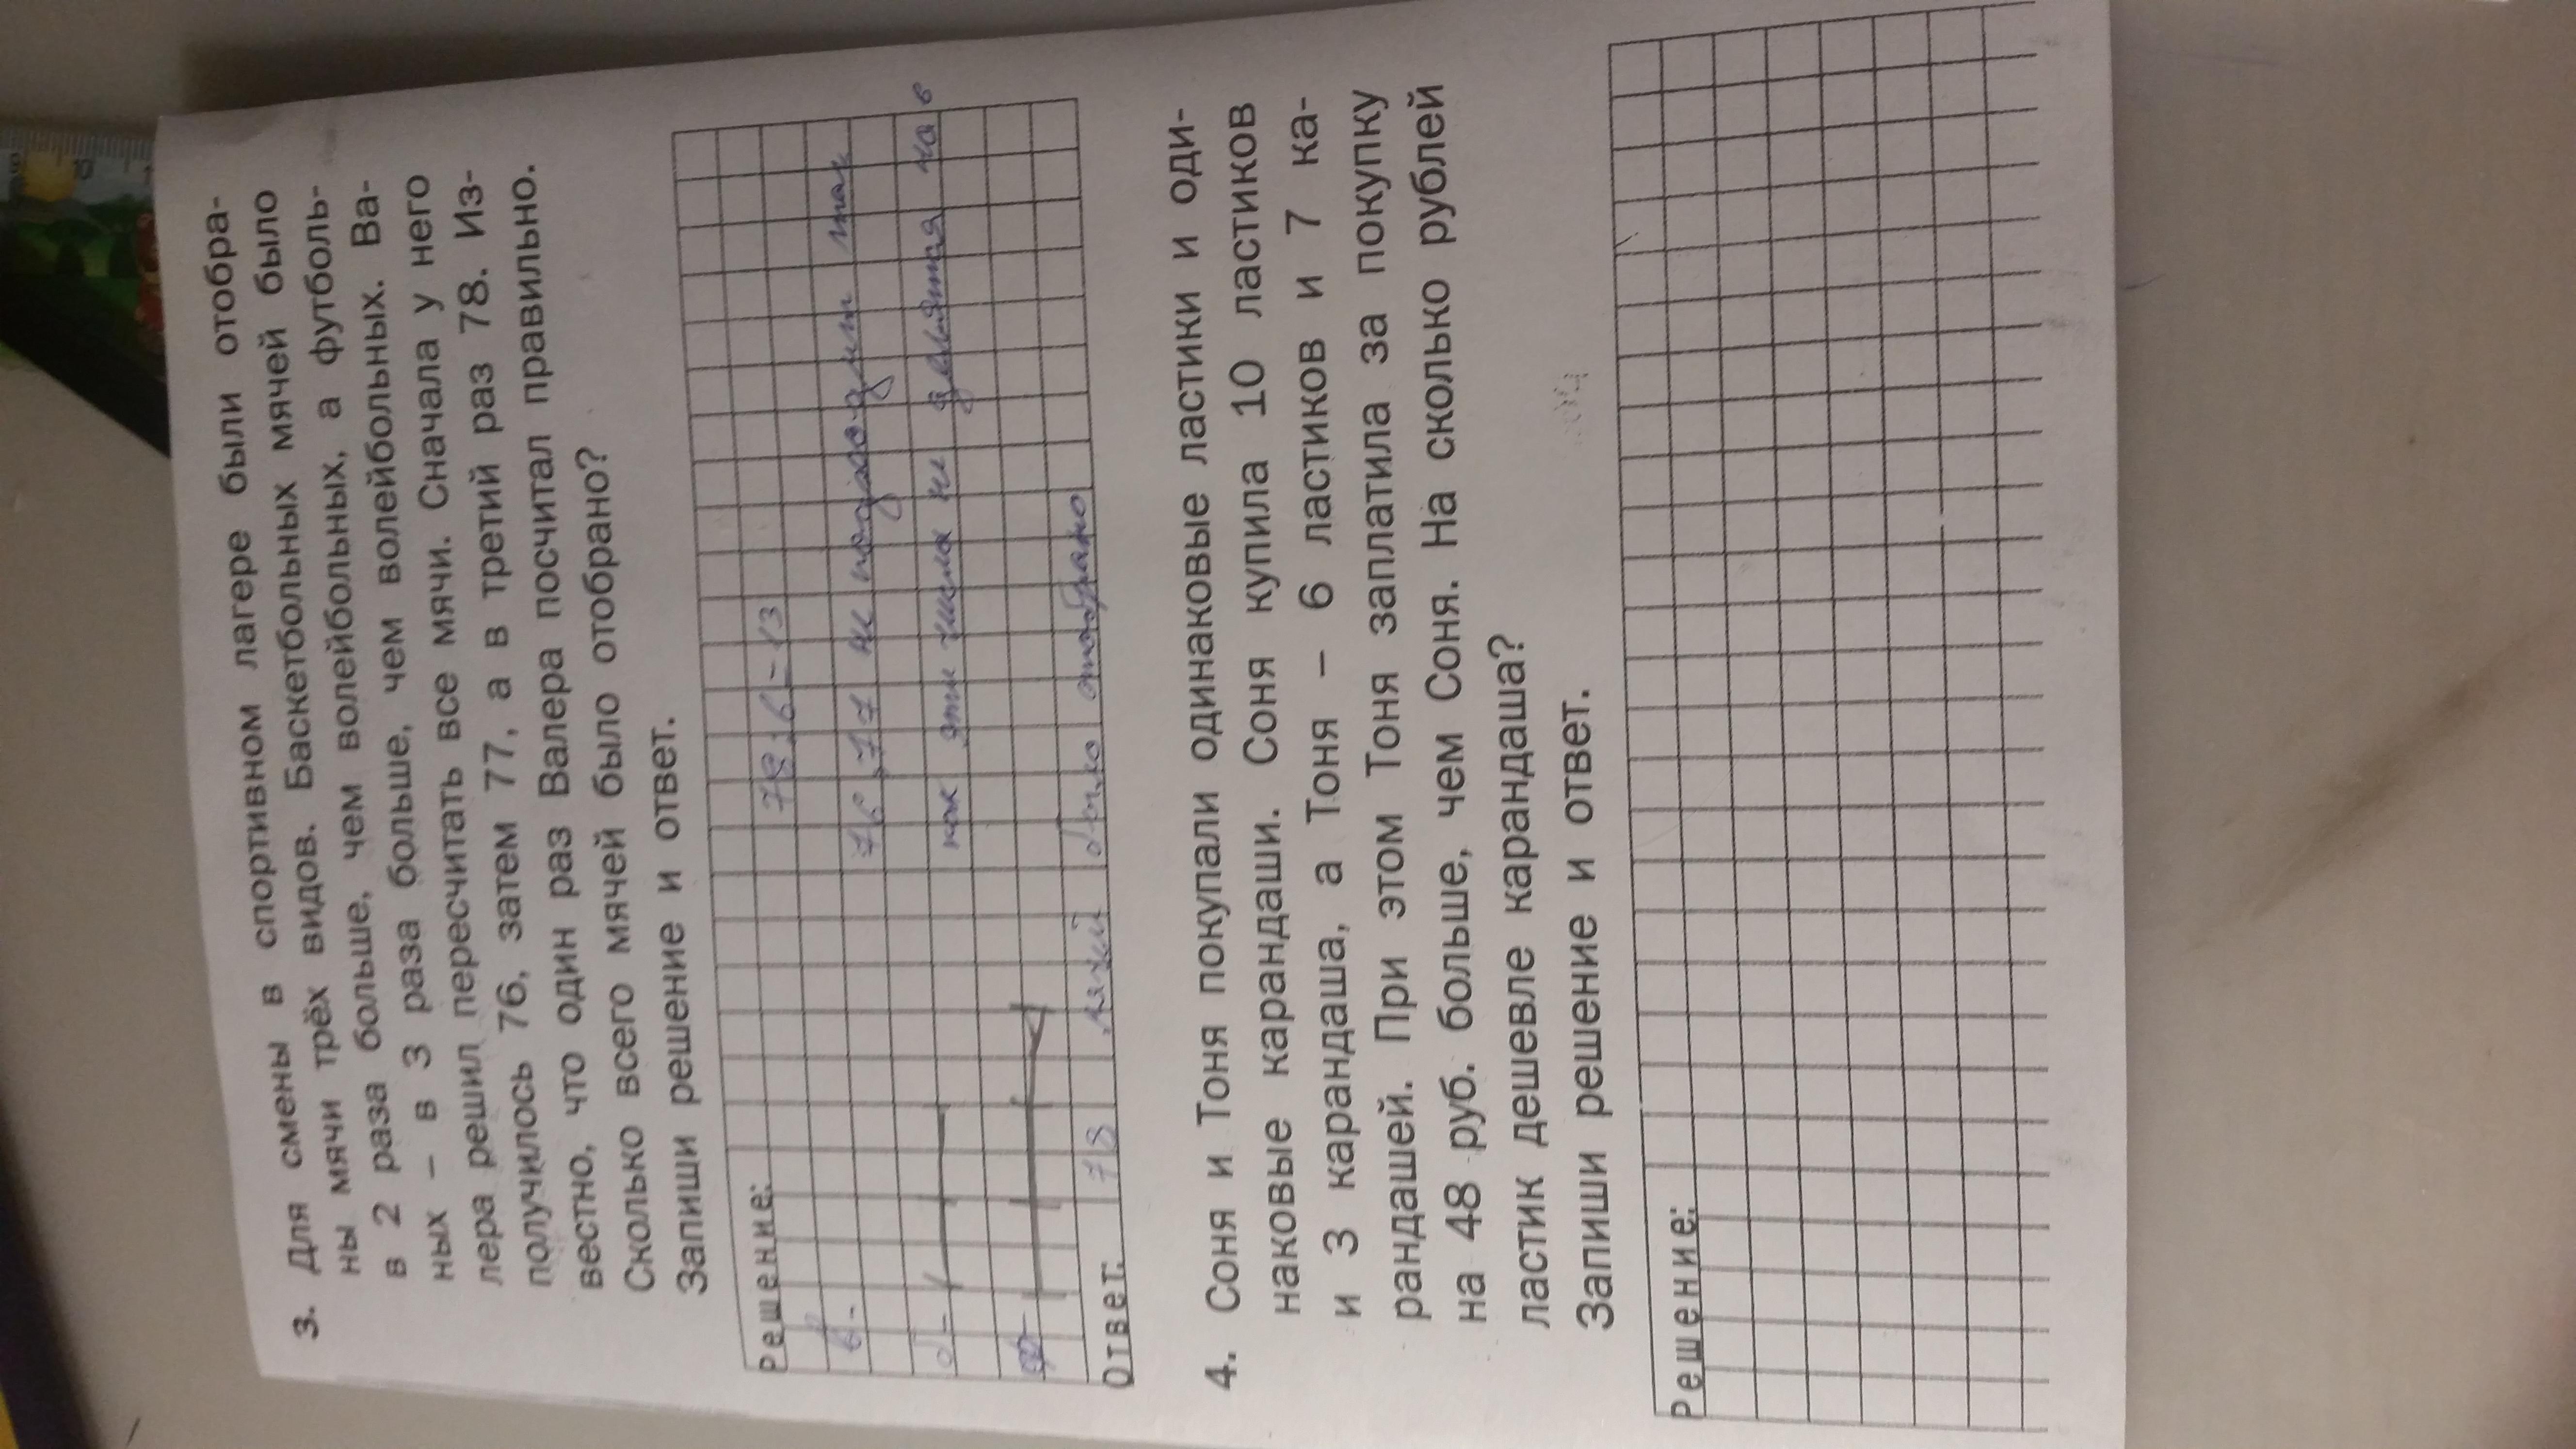 3. Для смены в спортивном лагере были отобра-
ны мячи трёх видов. Баскетбольных мячей было
в 2 раза больше, чем волейбольных, а футболь-
ных – в 3 раза больше, чем волейбольных. Ва-
лера решил пересчитать все мячи. Сначала у него
получилось 76, затем 77, а в третий раз 78. Из-
вестно, что один раз Валера посчитал правильно.
Сколько всего мячей было отобрано?
Запиши решение и ответ.
Решение:
78:6=13
в-
76, 77 не подходит так
б-
как эти числа не делятся на 6
ф-
Ответ. 78 мячей было отобрано
4. Соня и Тоня покупали одинаковые ластики и оди-
наковые карандаши. Соня купила 10 ластиков
и 3 карандаша, а Тоня – 6 ластиков и 7 ка-
рандашей. При этом Тоня заплатила за покупку
на 48 руб. больше, чем Соня. На сколько рублей
ластик дешевле карандаша?
Запиши решение и ответ.
Решение: